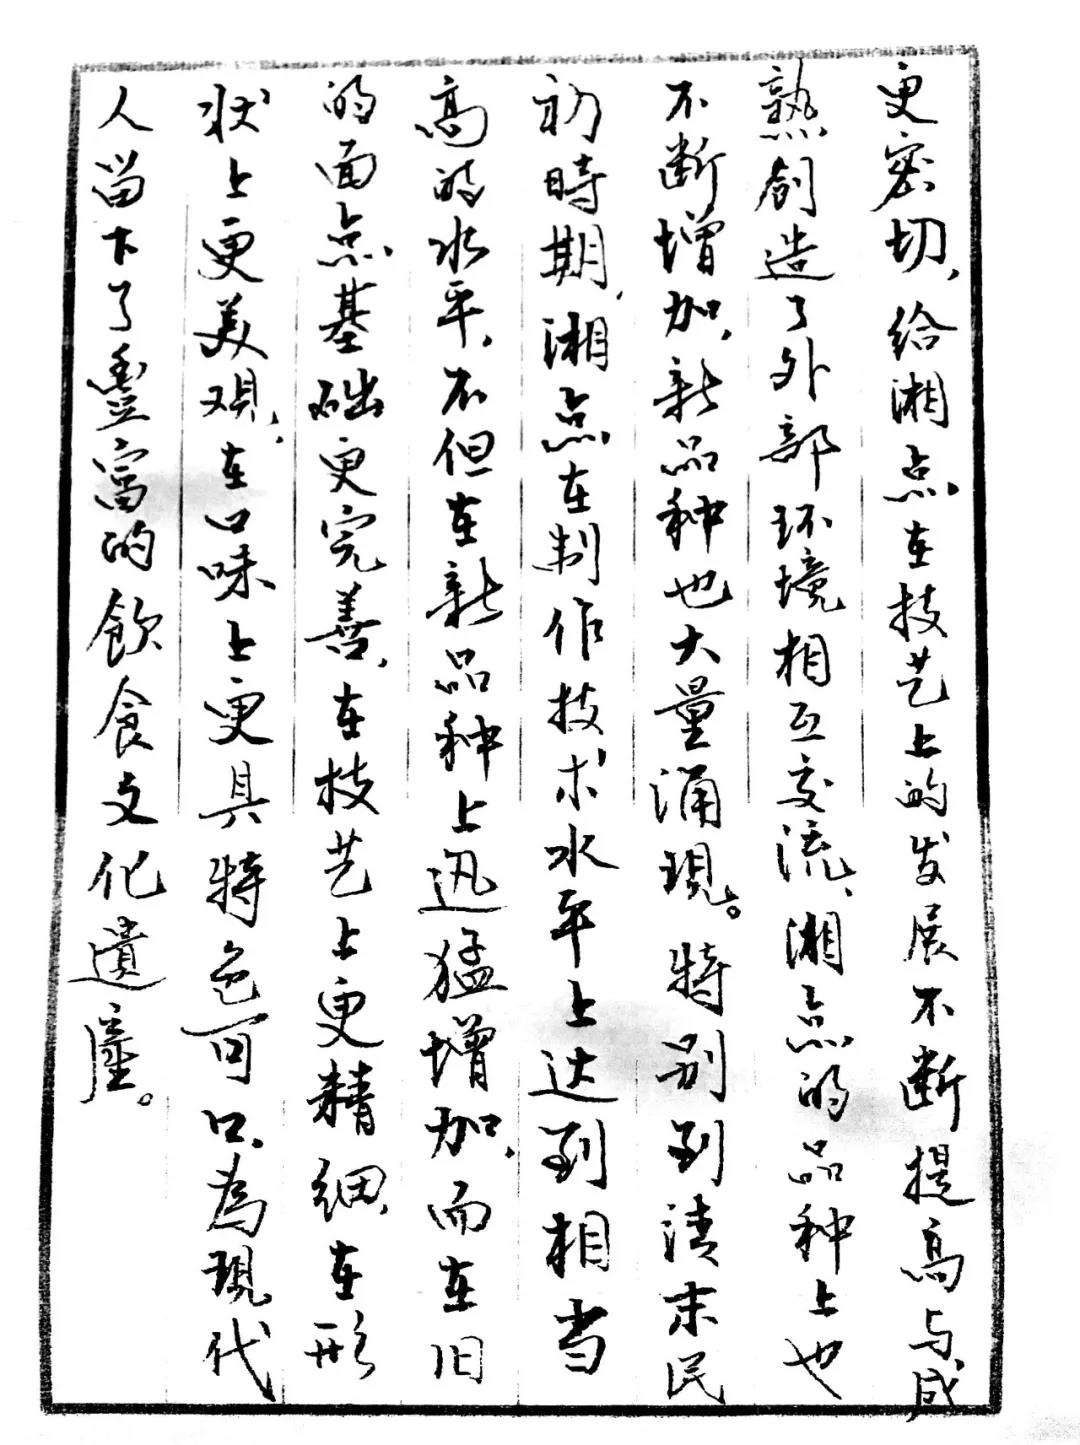 更密切，给湘点在技艺上的发展不断提高与成
熟创造了外部环境相互交流，湘点的品种上也
不断增加，新品种也大量涌現。特别到清末民
初時期，湘点在制作技术水平上达到相当
高的水平，不但在新品种上迅猛增加，而在旧
的面点基础更完善，在技艺上更精细，在形
状上更美观，在口味上更具特色可口，為現代
人留下了豐富的飲食文化遺産。